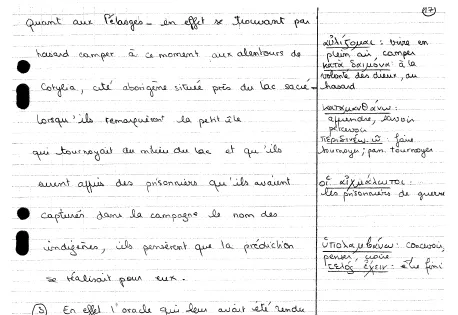 17
Quant aux Pélasges – en effet se trouvant par
hasard camper à ce moment aux alentours de
Cotylia, cité aborigène située près du lac sacré –
lorsqu'ils remarquèrent la petite île
qui tournoyait au milieu du lac et qu'ils
eurent appris des prisonniers qu'ils avaient
capturés dans la campagne le nom des
indigènes, ils pensèrent que la prédiction
se réalisait pour eux.
③ En effet l'oracle qui leur avait été rendu
αὐλίζομαι : vivre en
plein air camper
κατὰ δαίμονα : à la
volonté des dieux, au
hasard
καταμανθάνω :
apprendre, savoir
percevoir
faire
tournoyer ; pas. tournoyer
οἱ αἰχμάλωτοι :
les prisonniers de guerre
ὑπολαμβάνω : concevoir,
penser, croire
τέλος ἔχειν : être fini